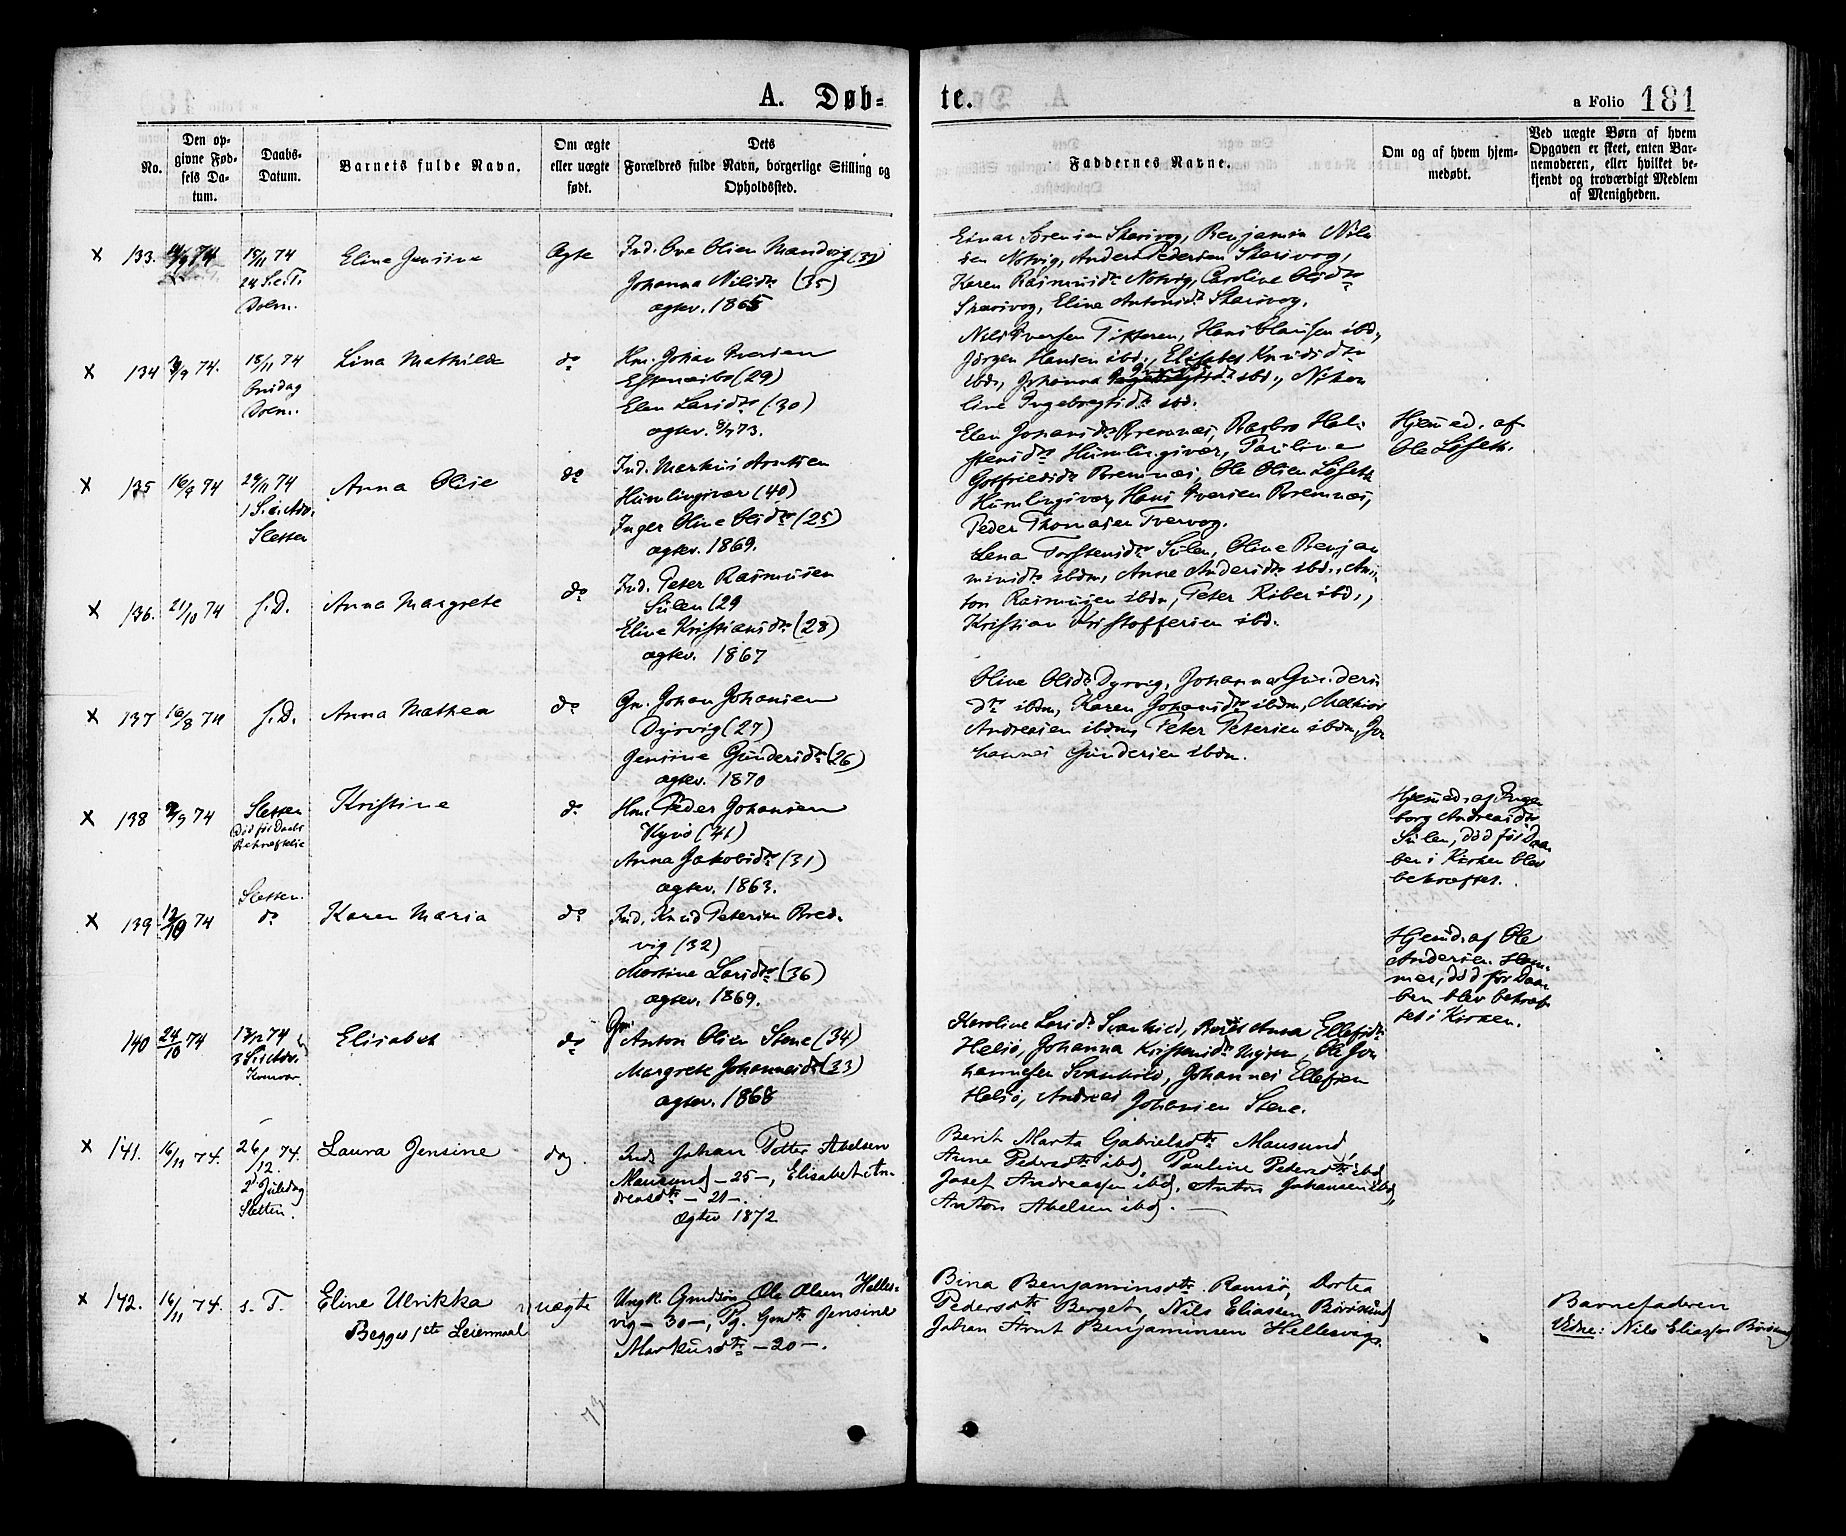 A. Døb-
te.
a Folio 181
No.
Den op-
givne Fød-
sels Da-
tum.
Daabs-
Datum.
Barnets fulde Navn.
Om ægte
eller uægte
født.
Dets
Forældres fulde Navn, borgerlige Stilling og
Opholdssted.
Faddernes Navne.
Om og af hvem hjem-
medøbt.
Ved uægte Børn af hvem
Opgaven er skeet, enten Bar-
nemoderen, eller hvilket be-
kjendt og troværdigt Medlem
af Menigheden.
× 133. 74
15/11 74
24 S.e.T.
Dolm.
Eline Jensine
Ægte
Ind. Ove Olsen Mandvig
Johanna Nilsdr (35)
ægtev. 1865
Einar Sørensen Skarsvog, Benjamin Nil-
sen Notvig, Anders Pedersen Skarsvog,
Karen Rasmusdr Notvig, Caroline Olsdr
Skarsvog, Eline Antonsdr Skarsvog.
× 134 /9 74.
18/11 74
Onsdag
Dolm.
Lina Mathilde
do
Hm. Johan Iversen
(29)
Elen Larsdr (30)
ægtev. 73.
Nils Iversen Titteren, Hans Clausen ibd.,
Jørgen Hansen ibd., Elisabet Knudsdr
ibd., Johanna ibd.,
line Ingebregtsdr ibd.
× 135 16/9 74
29/11 74
1 S. i Adv.
Sletten
Anna Olise
do
Ind. Markus Arntsen
Humlingsvær (40)
Inger Oline Olsdr (25)
ægtev. 1869.
Elen Johansdr Bremnæs, Barbro Hal-
stensdr Humlingsvær, Pauline
Gotfriedsdr Bremnæs, Ole Olsen Løfseth
Humlingsvær, Hans Iversen Bremnæs,
Peder Thomassen Tvervog.
Hjemed. af
Ole Løfseth.
× 136. 21/10 74
s. D.
Anna Margrete
do
Ind. Peter Rasmusen
Sulen (29
Eline Kristiansdr (28)
ægtev. 1867
Lena Torstensdr Sulen, Oline Benja-
minsdr ibdm, Anne Andersdr ibd., An-
ton Rasmusen ibdm, Peter Riber ibd.,
Kristian Kristoffersen ibd.
× 137 16/8 74
s. D.
Anna Mathea
do
Gm. Johan Johansen
Dyrvig (27)
Jensine Gundersdr (26)
ægtev. 1870
Oline Olsdr Dyrvig, Johanna Gunders
dr ibdm, Karen Johansdr ibdm, Melkior
Andreasen ibdm, Peter Petersen ibdm, Jo-
hannes Gundersen ibdm.
× 138 /9 74
Sletten
Død før Daabs
Bekræftelse
Kristine
do
Hm. Peder Johansen
(41)
Anna Jakobsdr (31)
ægtev. 1863.
Hjemed. af Inge
borg Andreasdr
Sulen, død før Daa
ben i Kirken blev
bekræftet.
× 139 12/10 74
Sletten.
do
Karen Maria
do
Ind. Knud Petersen Bred-
vig (32)
Martine Larsdr (36)
ægtev. 1869.
Hjemd. af Ole
Andersen Ham-
mer, død før Daa-
ben blev bekræf-
tet i Kirken.
140 24/10 74
13/12 74
3 S. i Adv.
Kvenvær
Elisabet
do
Gm. Anton Olsen Stene (34)
Margrete Johannesdr (33)
ægtev. 1868
Karoline Larsdr Svankild, Berit Anna Ellefsdr
Helsø, Johanna Kristensdr Ulgsen, Ole Jo-
hannesen Svankild, Johannes Ellefsen
Helsø, Andreas Johansen Stene.
× 141. 16/11 74.
26/12. 74.
2d Juledag
Sletten.
Laura Jensine
do
Inds Johan Petter Abelsen
Mausund – 25 –, Elisabet An-
dreasdtr – 21 –.
Ægtev 1872
Berit Marta Gabrielsdtr Mausund,
Anne Pedersdtr ibd, Pauline Pedersdtr ibd
Josef Andreassen ibd, Anton Johansen ibd,
Anton Abelsen ibd. –
× 142. 16/11 74.
s. T.
Eline Ulrikka
Begges 1ste Leiermaal
uægte
Ungk. Gmdsøn Ole Olsen Helles-
vig – 30 –, Pg. Gmdtr Jensine
Markusdtr – 20 –.
Bina Benjaminsdtr Ramsø, Dortea
Pedersdtr Berget, Nils Eliassen Børøsund
Johan Arnt Benjaminsen Hellesvigs.
Barnefaderen
Vidne: Nils Eliassen Børøsund
73